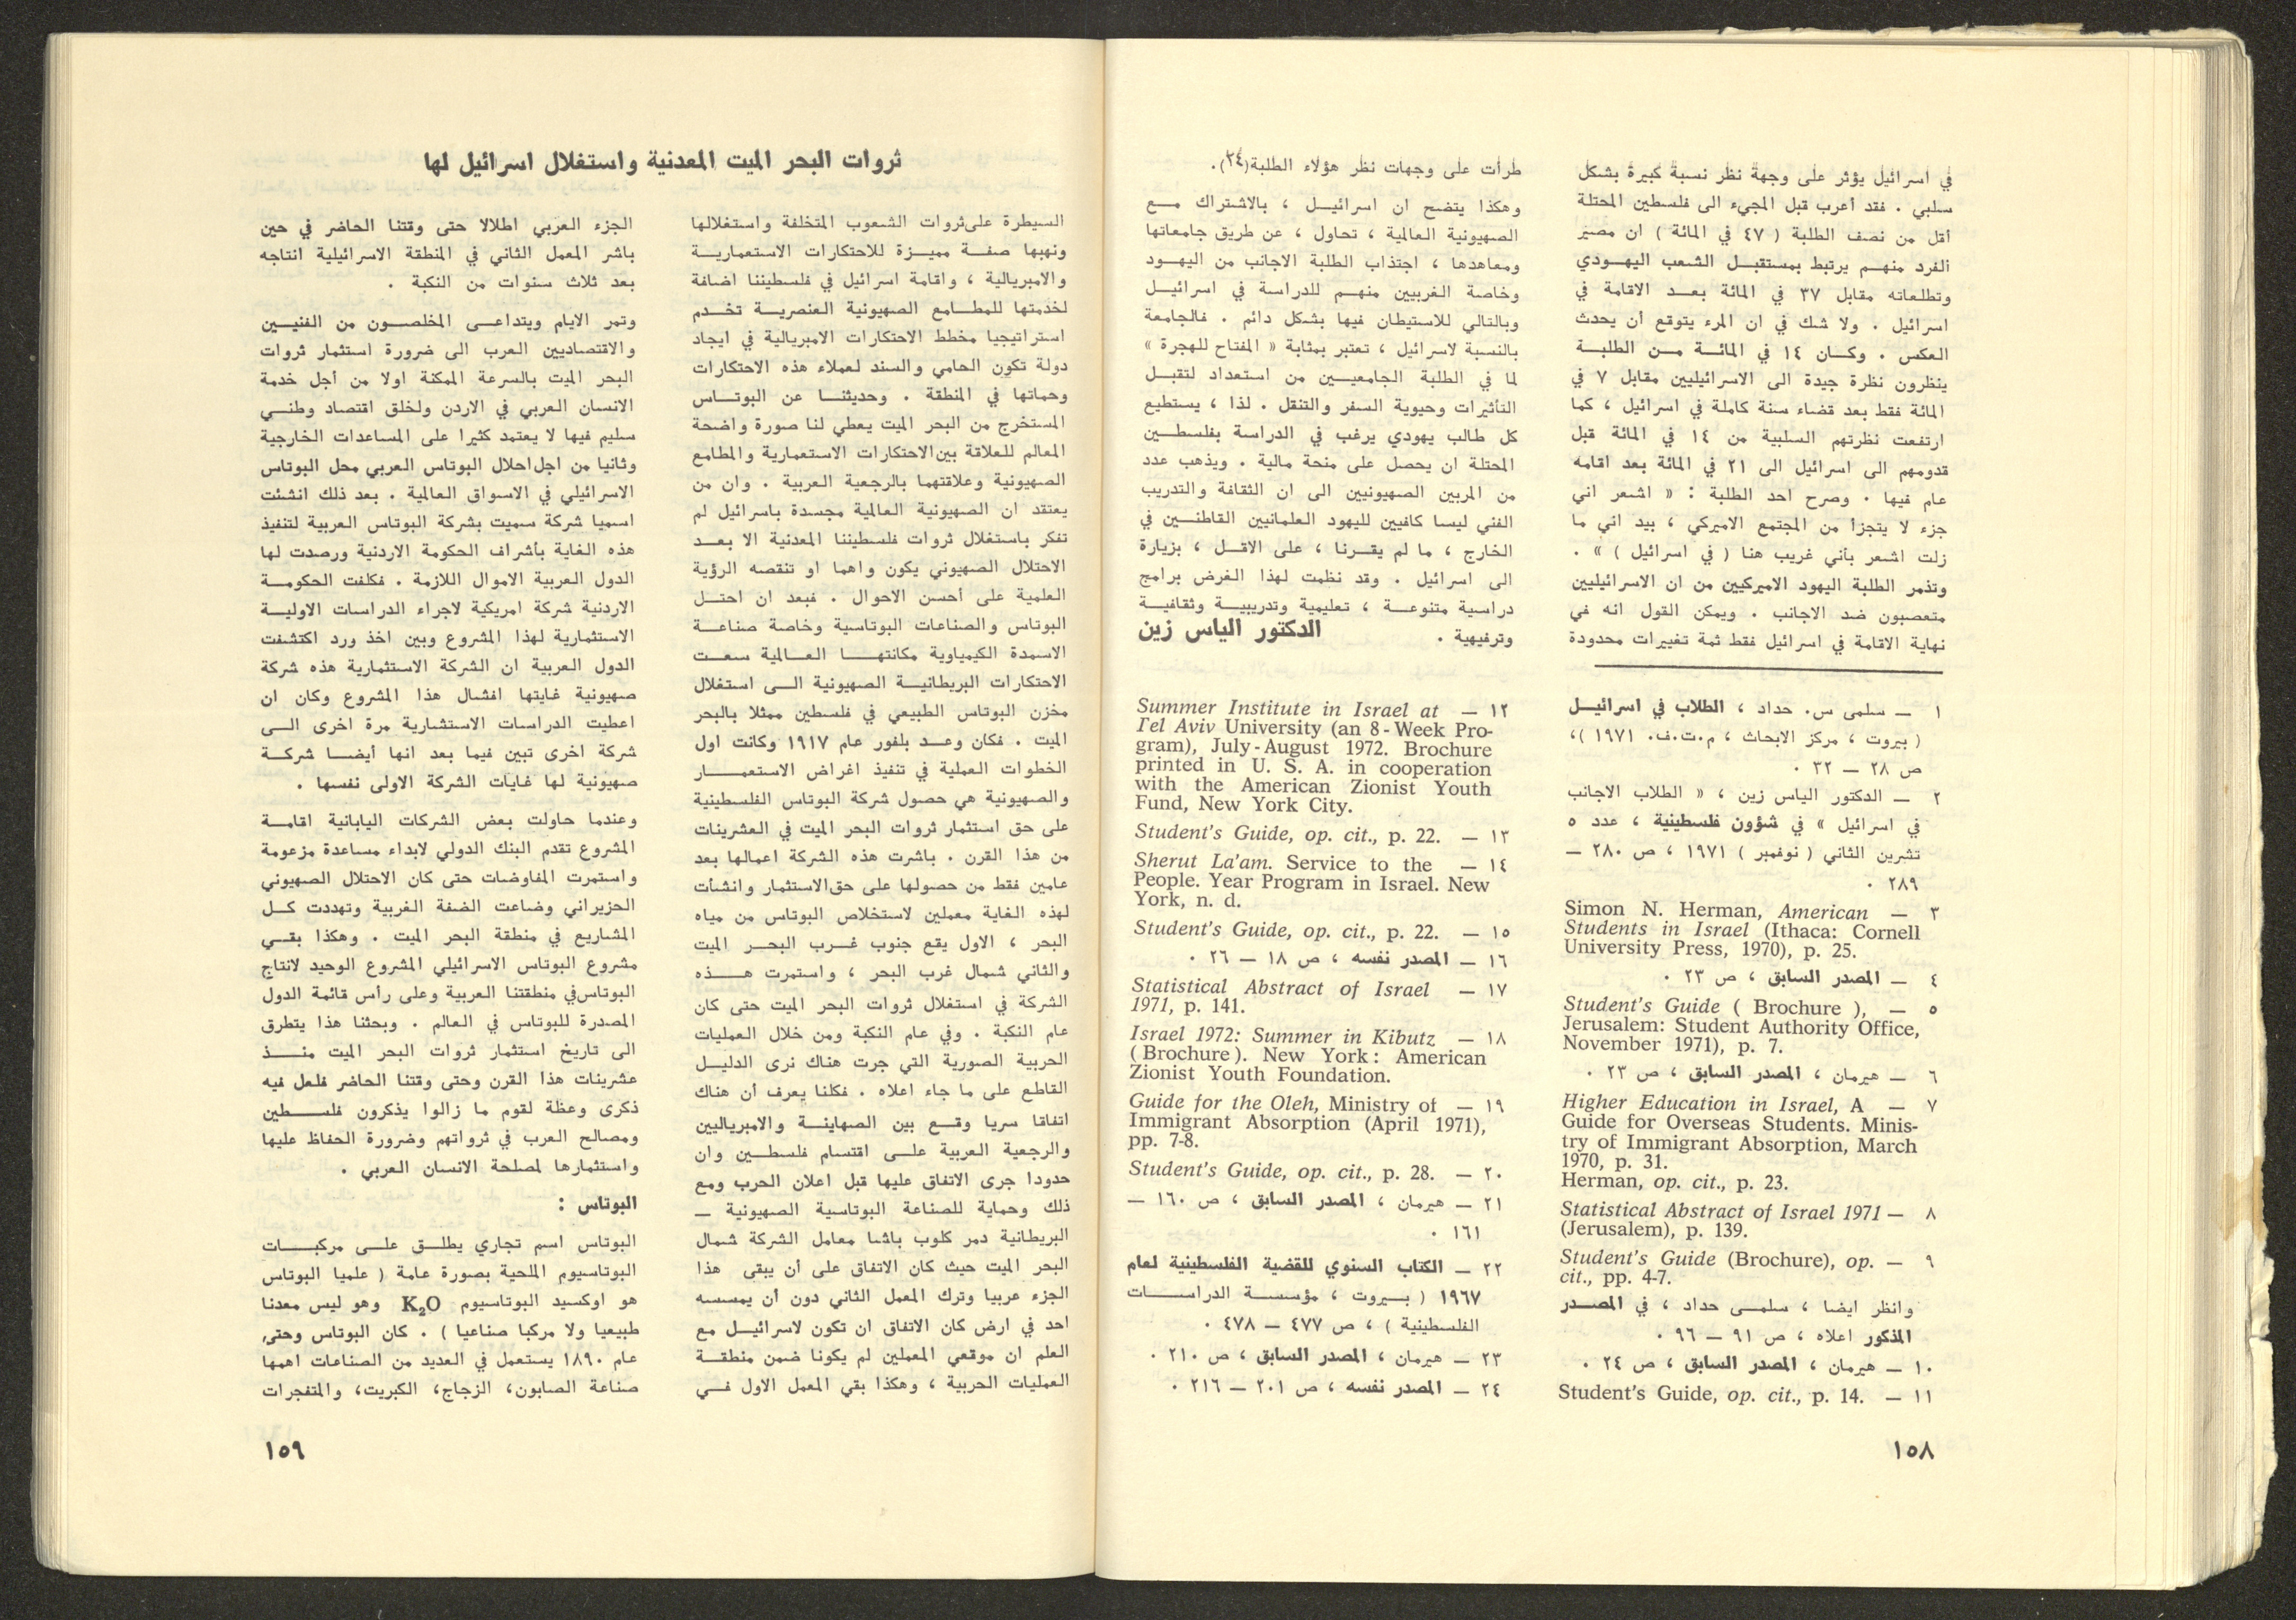 في اسرائيل يؤثر على وجهة نظر نسبة كبيرة بشكل
سلبي . فقد أعرب قبل المجيء الى فلسطين المحتلة
أقل من نصف الطلبة ( ٤٧ في المائة ) ان مصير
الفرد منهم يرتبط بمستقبل الشعب اليهودي
وتطلعاته مقابل ٣٧ في المائة بعد الاقامة في
اسرائيل . ولا شك في ان المرء يتوقع أن يحدث
العكس . وكان ١٤ في المائة من الطلبة
ينظرون نظرة جيدة الى الاسرائيليين مقابل ٧ في
المائة فقط بعد قضاء سنة كاملة في اسرائيل ، كما
ارتفعت نظرتهم السلبية من ١٤ في المائة قبل
قدومهم الى اسرائيل الى ٢١ في المائة بعد اقامه
عام فيها . وصرح احد الطلبة : « اشعر اني
جزء لا يتجزأ من المجتمع الاميركي ، بيد اني ما
زلت اشعر بأني غريب هنا ( في اسرائيل ) » .
وتذمر الطلبة اليهود الاميركيين من ان الاسرائيليين
متعصبون ضد الاجانب . ويمكن القول انه في
نهاية الاقامة في اسرائيل فقط ثمة تغييرات محدودة
طرأت على وجهات نظر هؤلاء الطلبة(٢٤).
وهكذا يتضح ان اسرائيل ، بالاشتراك مع
الصهيونية العالمية ، تحاول ، عن طريق جامعاتها
ومعاهدها ، اجتذاب الطلبة الاجانب من اليهود
وخاصة الغربيين منهم للدراسة في اسرائيل
وبالتالي للاستيطان فيها بشكل دائم . فالجامعة
بالنسبة لاسرائيل ، تعتبر بمثابة « المفتاح للهجرة »
لما في الطلبة الجامعيين من استعداد لتقبل
التأثيرات وحيوية السفر والتنقل . لذا ، يستطيع
كل طالب يهودي يرغب في الدراسة بفلسطين
المحتلة ان يحصل على منحة مالية . ويذهب عدد
من المربين الصهيونيين الى ان الثقافة والتدريب
الفني ليسا كافيين لليهود العلمانيين القاطنين في
الخارج ، ما لم يقرنا ، على الاقل ، بزيارة
الى اسرائيل . وقد نظمت لهذا الغرض برامج
دراسية متنوعة ، تعليمية وتدريبية وثقافية
وترفيهية .
الدكتور الياس زين
١ — سلمى س. حداد ، الطلاب في اسرائيل
( بيروت ، مركز الابحاث ، م.ت.ف. ١٩٧١ )،
ص ٢٨ — ٣٢ .
٢ — الدكتور الياس زين ، « الطلاب الاجانب
في اسرائيل » في شؤون فلسطينية ، عدد ٥
تشرين الثاني ( نوفمبر ) ١٩٧١ ، ص ٢٨٠ —
٢٨٩ .
٣ — Simon N. Herman, American
Students in Israel (Ithaca: Cornell
University Press, 1970), p. 25.
٤ — المصدر السابق ، ص ٢٣ .
٥ — Student's Guide ( Brochure ),
Jerusalem: Student Authority Office,
November 1971), p. 7.
٦ — هيرمان ، المصدر السابق ، ص ٢٣ .
٧ — Higher Education in Israel, A
Guide for Overseas Students. Minis-
try of Immigrant Absorption, March
1970, p. 31.
Herman, op. cit., p. 23.
٨ — Statistical Abstract of Israel 1971
(Jerusalem), p. 139.
٩ — Student's Guide (Brochure), op.
cit., pp. 4-7.
وانظر ايضا ، سلمى حداد ، في المصدر
المذكور اعلاه ، ص ٩١ — ٩٦ .
١٠ — هيرمان ، المصدر السابق ، ص ٢٤ .
١١ — Student's Guide, op. cit., p. 14.
١٢ — Summer Institute in Israel at
Tel Aviv University (an 8-Week Pro-
gram), July-August 1972. Brochure
printed in U. S. A. in cooperation
with the American Zionist Youth
Fund, New York City.
١٣ — Student's Guide, op. cit., p. 22.
١٤ — Sherut La'am. Service to the
People. Year Program in Israel. New
York, n. d.
١٥ — Student's Guide, op. cit., p. 22.
١٦ — المصدر نفسه ، ص ١٨ — ٢٦ .
١٧ — Statistical Abstract of Israel
1971, p. 141.
١٨ — Israel 1972: Summer in Kibutz
(Brochure). New York: American
Zionist Youth Foundation.
١٩ — Guide for the Oleh, Ministry of
Immigrant Absorption (April 1971),
pp. 7-8.
٢٠ — Student's Guide, op. cit., p. 28.
٢١ — هيرمان ، المصدر السابق ، ص ١٦٠ —
١٦١ .
٢٢ — الكتاب السنوي للقضية الفلسطينية لعام
١٩٦٧ ( بيروت ، مؤسسة الدراسات
الفلسطينية ) ، ص ٤٧٧ — ٤٧٨ .
٢٣ — هيرمان ، المصدر السابق ، ص ٢١٠ .
٢٤ — المصدر نفسه ، ص ٢٠١ — ٢١٦ .
١٥٨
ثروات البحر الميت المعدنية واستغلال اسرائيل لها
السيطرة على ثروات الشعوب المتخلفة واستغلالها
ونهبها صفة مميزة للاحتكارات الاستعمارية
والامبريالية ، واقامة اسرائيل في فلسطيننا اضافة
لخدمتها للمطامع الصهيونية العنصرية تخدم
استراتيجيا مخطط الاحتكارات الامبريالية في ايجاد
دولة تكون الحامي والسند لعملاء هذه الاحتكارات
وحماتها في المنطقة . وحديثنا عن البوتاس
المستخرج من البحر الميت يعطي لنا صورة واضحة
المعالم للعلاقة بين الاحتكارات الاستعمارية والمطامع
الصهيونية وعلاقتهما بالرجعية العربية . وان من
يعتقد ان الصهيونية العالمية مجسدة باسرائيل لم
تفكر باستغلال ثروات فلسطيننا المعدنية الا بعد
الاحتلال الصهيوني يكون واهما او تنقصه الرؤية
العلمية على أحسن الاحوال . فبعد ان احتل
البوتاس والصناعات البوتاسية وخاصة صناعة
الاسمدة الكيمياوية مكانتها العالمية سعت
الاحتكارات البريطانية الصهيونية الى استغلال
مخزن البوتاس الطبيعي في فلسطين ممثلا بالبحر
الميت . فكان وعد بلفور عام ١٩١٧ وكانت اول
الخطوات العملية في تنفيذ اغراض الاستعمار
والصهيونية هي حصول شركة البوتاس الفلسطينية
على حق استثمار ثروات البحر الميت في العشرينات
من هذا القرن . باشرت هذه الشركة اعمالها بعد
عامين فقط من حصولها على حق الاستثمار وانشأت
لهذه الغاية معملين لاستخلاص البوتاس من مياه
البحر ، الاول يقع جنوب غرب البحر الميت
والثاني شمال غرب البحر ، واستمرت هذه
الشركة في استغلال ثروات البحر الميت حتى كان
عام النكبة . وفي عام النكبة ومن خلال العمليات
الحربية الصورية التي جرت هناك نرى الدليل
القاطع على ما جاء اعلاه . فكلنا يعرف أن هناك
اتفاقا سريا وقع بين الصهاينة والامبرياليين
والرجعية العربية على اقتسام فلسطين وان
حدودا جرى الاتفاق عليها قبل اعلان الحرب ومع
ذلك وحماية للصناعة البوتاسية الصهيونية —
البريطانية دمر كلوب باشا معامل الشركة شمال
البحر الميت حيث كان الاتفاق على أن يبقى هذا
الجزء عربيا وترك المعمل الثاني دون أن يمسسه
احد في ارض كان الاتفاق ان تكون لاسرائيل مع
العلم ان موقعي المعملين لم يكونا ضمن منطقة
العمليات الحربية ، وهكذا بقي المعمل الاول في
الجزء العربي اطلالا حتى وقتنا الحاضر في حين
باشر المعمل الثاني في المنطقة الاسرائيلية انتاجه
بعد ثلاث سنوات من النكبة .
وتمر الايام ويتداعى المخلصون من الفنيين
والاقتصاديين العرب الى ضرورة استثمار ثروات
البحر الميت بالسرعة الممكنة اولا من أجل خدمة
الانسان العربي في الاردن ولخلق اقتصاد وطني
سليم فيها لا يعتمد كثيرا على المساعدات الخارجية
وثانيا من اجل احلال البوتاس العربي محل البوتاس
الاسرائيلي في الاسواق العالمية . بعد ذلك انشئت
اسميا شركة سميت بشركة البوتاس العربية لتنفيذ
هذه الغاية بأشراف الحكومة الاردنية ورصدت لها
الدول العربية الاموال اللازمة . فكلفت الحكومة
الاردنية شركة امريكية لاجراء الدراسات الاولية
الاستثمارية لهذا المشروع وبين اخذ ورد اكتشفت
الدول العربية ان الشركة الاستثمارية هذه شركة
صهيونية غايتها افشال هذا المشروع وكان ان
اعطيت الدراسات الاستشارية مرة اخرى الى
شركة اخرى تبين فيما بعد انها أيضا شركة
صهيونية لها غايات الشركة الاولى نفسها .
وعندما حاولت بعض الشركات اليابانية اقامة
المشروع تقدم البنك الدولي لابداء مساعدة مزعومة
واستمرت المفاوضات حتى كان الاحتلال الصهيوني
الحزيراني وضاعت الضفة الغربية وتهددت كل
المشاريع في منطقة البحر الميت . وهكذا بقي
مشروع البوتاس الاسرائيلي المشروع الوحيد لانتاج
البوتاس في منطقتنا العربية وعلى رأس قائمة الدول
المصدرة للبوتاس في العالم . وبحثنا هذا يتطرق
الى تاريخ استثمار ثروات البحر الميت منذ
عشرينات هذا القرن وحتى وقتنا الحاضر فلعل فيه
ذكرى وعظة لقوم ما زالوا يذكرون فلسطين
ومصالح العرب في ثرواتهم وضرورة الحفاظ عليها
واستثمارها لمصلحة الانسان العربي .
البوتاس :
البوتاس اسم تجاري يطلق على مركبات
البوتاسيوم الملحية بصورة عامة ( علميا البوتاس
هو اوكسيد البوتاسيوم K₂O وهو ليس معدنا
طبيعيا ولا مركبا صناعيا ) . كان البوتاس وحتى
عام ١٨٩٠ يستعمل في العديد من الصناعات اهمها
صناعة الصابون، الزجاج، الكبريت، والمتفجرات
١٥٩